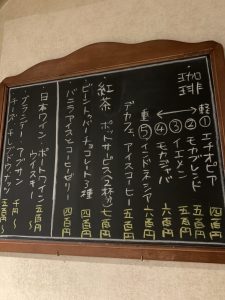 珈琲
軽 ① エチオピア 四百円
② モカブレンド 五百円
③ イエメン 五百円
④ モカジャバ 六百円
重 ⑤ インドネシア 六百円
デカフェ、アイスコーヒー 五百円
・紅茶 ポットサービス(2杯分) 七百円
・ビーントゥバーチョコレート3種 四百円
バニラアイスとコーヒーゼリー 四百円
・日本ワイン ポートワイン 五百円〜
ウイスキー 五百円〜
ブランデー アブサン 千円〜
チーズ、オリーブ、ドライナッツ 五百円〜